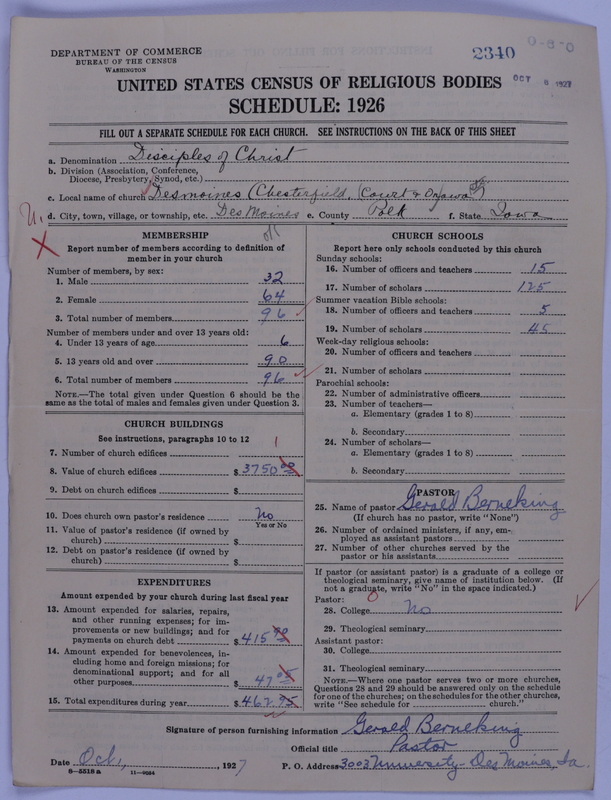 DEPARTMENT OF COMMERCE
BUREAU OF THE CENSUS
WASHINGTON
2340
0-8-0
OCT 6 1927
UNITED STATES CENSUS OF RELIGIOUS BODIES
SCHEDULE: 1926
FILL OUT A SEPARATE SCHEDULE FOR EACH CHURCH. SEE INSTRUCTIONS ON THE BACK OF THIS SHEET
a. Denomination Disciples of Christ
b. Division (Association, Conference,
Diocese, Presbytery, Synod, etc.)
c. Local name of church Desmoines (Chesterfield, (Court &
d. City, town, village, or township, etc. Des Moines e. County Polk f. State Iowa
MEMBERSHIP
Report number of members according to definition of
member in your church
Number of members, by sex:
1. Male 32
2. Female 64
3. Total number of members 96
Number of members under and over 13 years old:
4. Under 13 years of age 6
5. 13 years old and over 90
6. Total number of members 96
NOTE.—The total given under Question 6 should be the
same as the total of males and females given under Question 3.
CHURCH BUILDINGS
See instructions, paragraphs 10 to 12
7. Number of church edifices 1
8. Value of church edifices $ 3750 00
9. Debt on church edifices $
10. Does church own pastor's residence No
Yes or No
11. Value of pastor's residence (if owned by
church) $
12. Debt on pastor's residence (if owned by
church) $
EXPENDITURES
Amount expended by your church during last fiscal year
13. Amount expended for salaries, repairs,
and other running expenses; for im-
provements or new buildings; and for
payments on church debt $ 415
14. Amount expended for benevolences, in-
cluding home and foreign missions; for
denominational support; and for all
other purposes $ 47
15. Total expenditures during year $ 462
CHURCH SCHOOLS
Report here only schools conducted by this church
Sunday schools:
16. Number of officers and teachers 15
17. Number of scholars 125
Summer vacation Bible schools:
18. Number of officers and teachers 5
19. Number of scholars 45
Week-day religious schools:
20. Number of officers and teachers
21. Number of scholars
Parochial schools:
22. Number of administrative officers
23. Number of teachers—
a. Elementary (grades 1 to 8)
b. Secondary
24. Number of scholars—
a. Elementary (grades 1 to 8)
b. Secondary
PASTOR
25. Name of pastor Gerald Berneking
(If church has no pastor, write "None")
26. Number of ordained ministers, if any, em-
ployed as assistant pastors
27. Number of other churches served by the
pastor or his assistants
If pastor (or assistant pastor) is a graduate of a college or
theological seminary, give name of institution below. (If
not a graduate, write "No" in the space indicated.)
Pastor: 0
28. College No
29. Theological seminary
Assistant pastor:
30. College
31. Theological seminary
NOTE.—Where one pastor serves two or more churches,
Questions 28 and 29 should be answered only on the schedule
for one of the churches; on the schedules for the other churches,
write "See schedule for church."
Signature of person furnishing information Gerald Berneking
Official title Pastor
Date Oct, , 1927 P. O. Address 3003 University - Des Moines, Ia.
8-5518a 11-9054